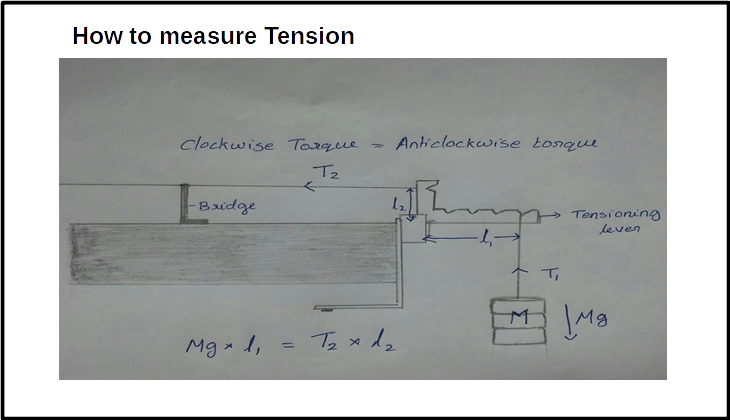 How to measure Tension
Clockwise Torque = Anticlockwise torque
T₂
Bridge
l₂
Tensioning
lever
l₁
T₁
M
Mg
Mg × l₁ = T₂ × l₂